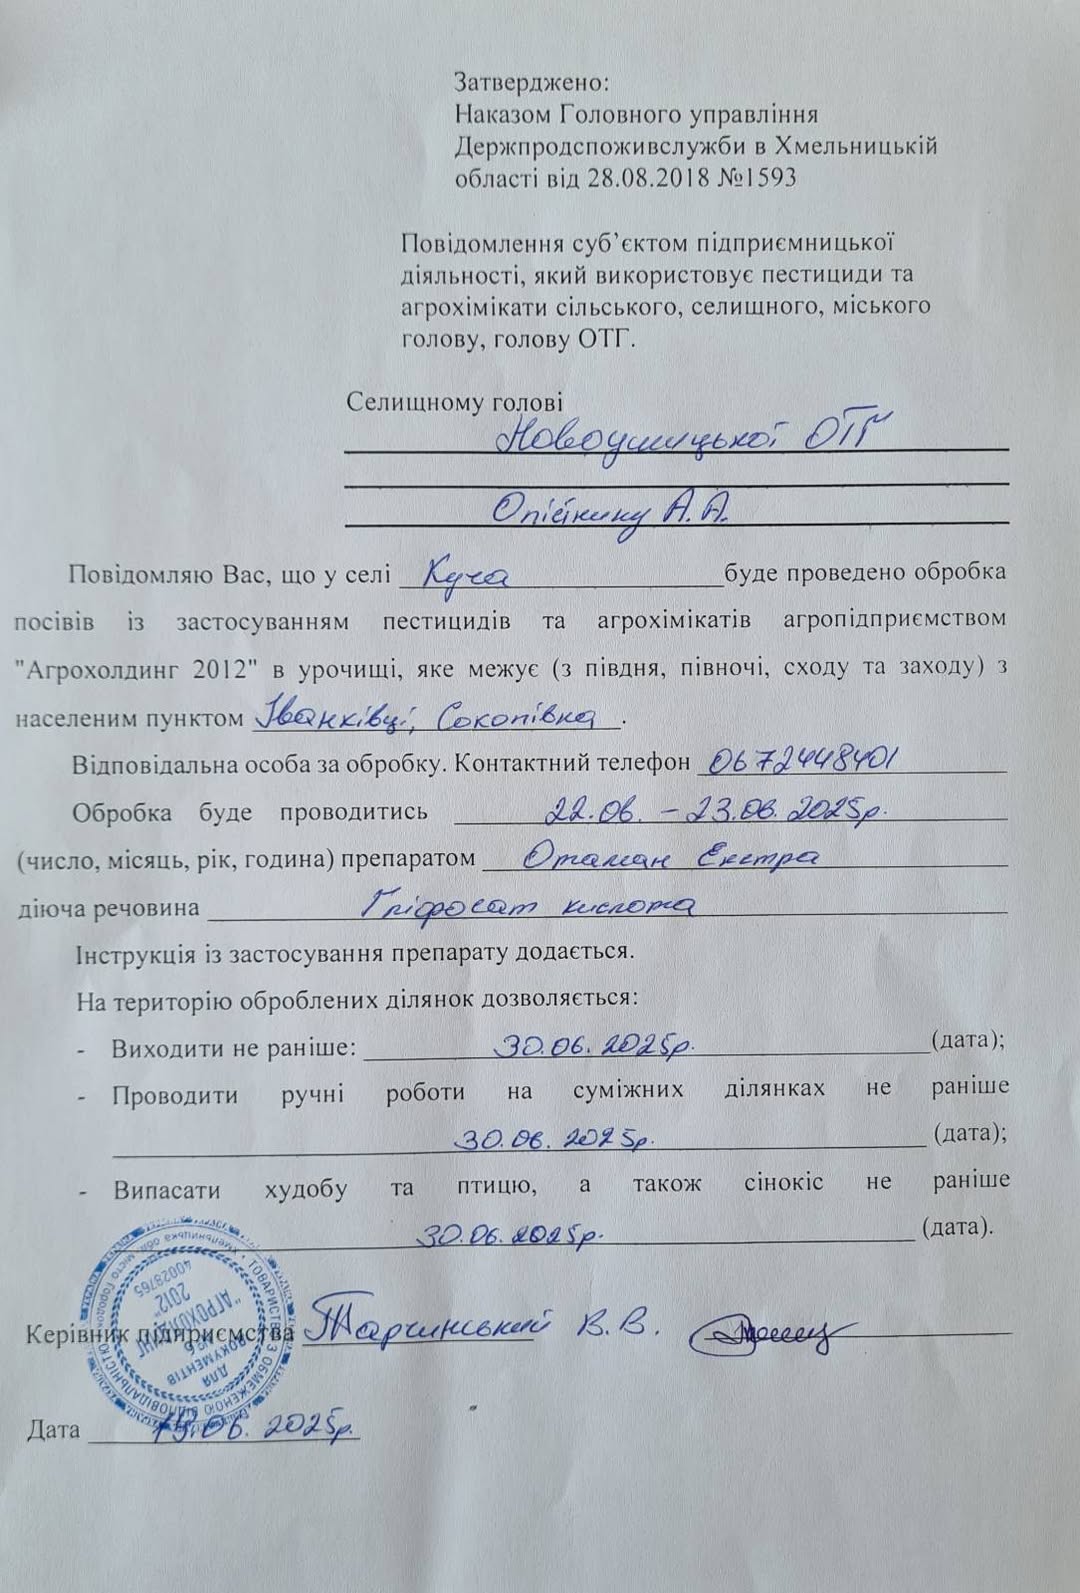 Затверджено:
Наказом Головного управління
Держпродспоживслужби в Хмельницькій
області від 28.08.2018 №1593
Повідомлення суб'єктом підприємницької
діяльності, який використовує пестициди та
агрохімікати сільського, селищного, міського
голову, голову ОТГ.
Селищному голові
Новоушицької ОТГ
Олійнику А.А.
Повідомляю Вас, що у селі Куча буде проведено обробка
посівів із застосуванням пестицидів та агрохімікатів агропідприємством
"Агрохолдинг 2012" в урочищі, яке межує (з півдня, півночі, сходу та заходу) з
населеним пунктом Іванківці, Соколівка .
Відповідальна особа за обробку. Контактний телефон 0672448401
Обробка буде проводитись 22.06. – 23.06. 2025р.
(число, місяць, рік, година) препаратом Отаман Екстра
діюча речовина Гліфосат кислота
Інструкція із застосування препарату додається.
На територію оброблених ділянок дозволяється:
- Виходити не раніше: 30.06. 2025р. (дата);
- Проводити ручні роботи на суміжних ділянках не раніше
30.06. 2025р. (дата);
- Випасати худобу та птицю, а також сінокіс не раніше
30.06. 2025р. (дата).
Керівник підприємства Тарчинський В.В.
Дата 19.06. 2025р.
ТОВАРИСТВО З ОБМЕЖЕНОЮ ВІДПОВІДАЛЬНІСТЮ
"АГРОХОЛДИНГ
2012"
40029765
ДЛЯ
ДОКУМЕНТІВ